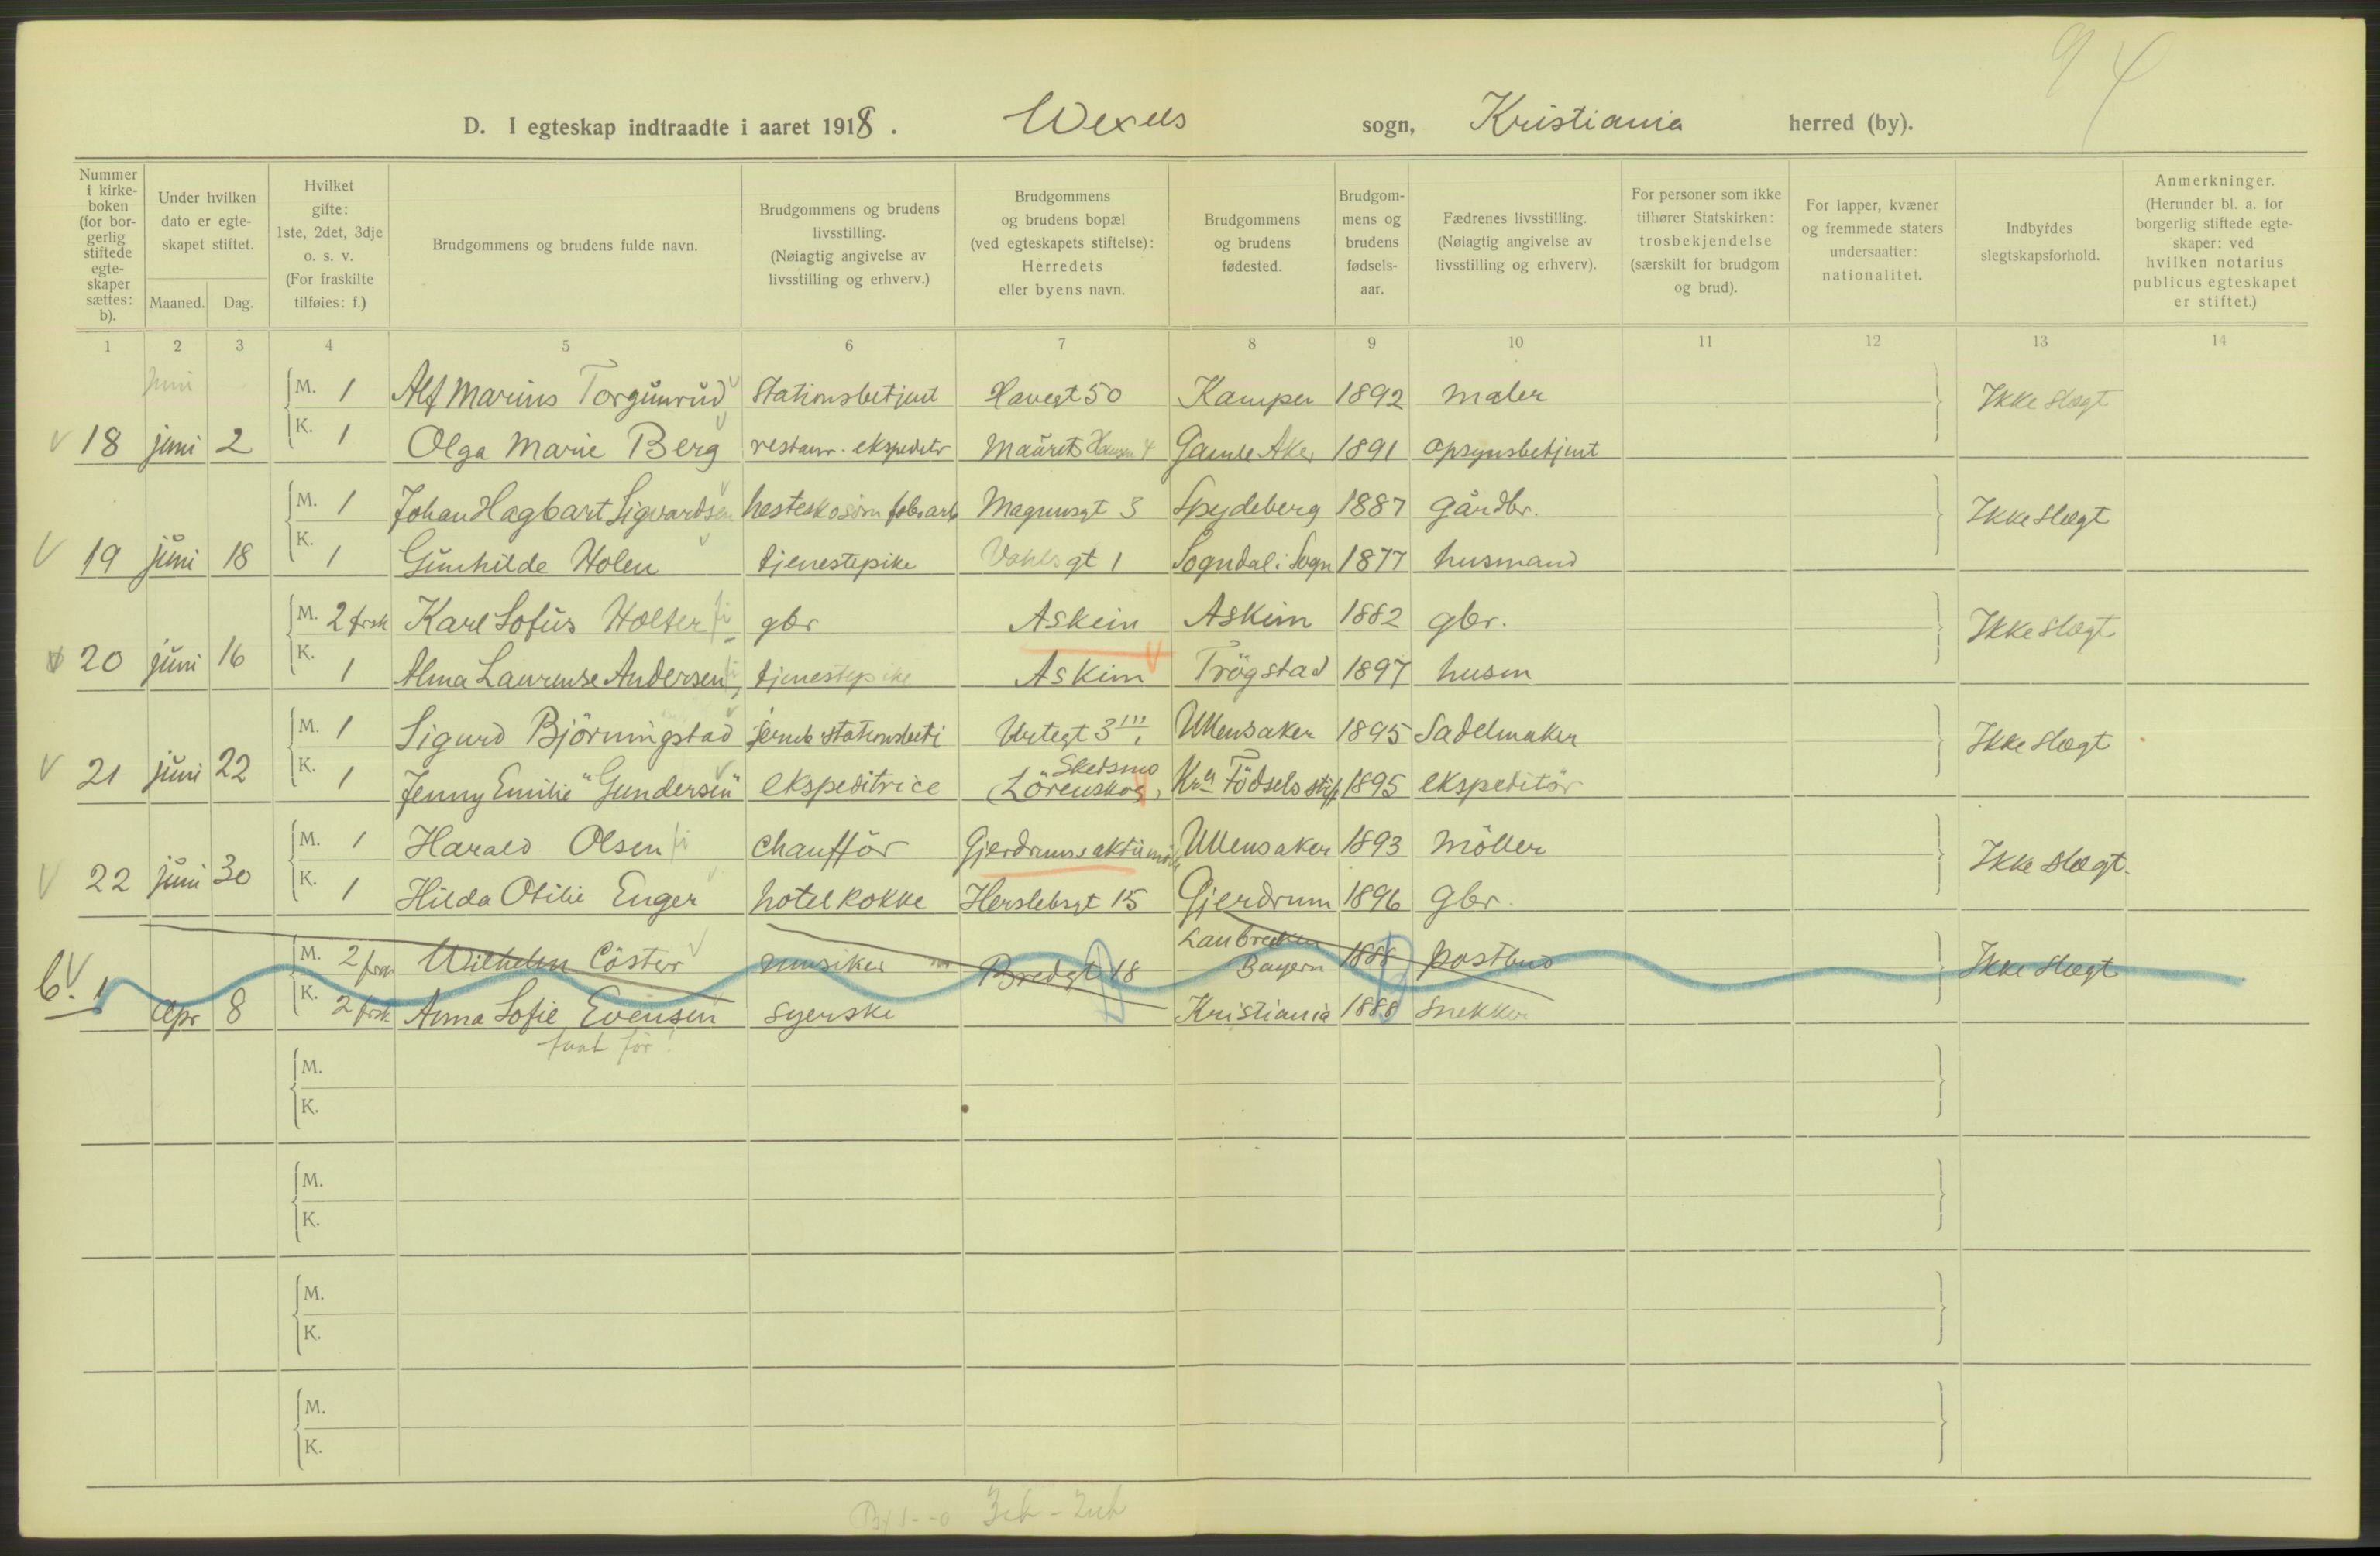 94
D. I egteskap indtraadte i aaret 1918. Wexels sogn, Kristiania herred (by).
Nummer i kirkeboken (for borgerlig stiftede egteskaper sættes: b).
Under hvilken dato er egteskapet stiftet.
Maaned. Dag.
Hvilket gifte: 1ste, 2det, 3dje o. s. v. (For fraskilte tilføies: f.)
Brudgommens og brudens fulde navn.
Brudgommens og brudens livsstilling. (Nøiagtig angivelse av livsstilling og erhverv.)
Brudgommens og brudens bopæl (ved egteskapets stiftelse): Herredets eller byens navn.
Brudgommens og brudens fødested.
Brudgommens og brudens fødselsaar.
Fædrenes livsstilling. (Nøiagtig angivelse av livsstilling og erhverv).
For personer som ikke tilhører Statskirken: trosbekjendelse (særskilt for brudgom og brud).
For lapper, kvæner og fremmede staters undersaatter: nationalitet.
Indbyrdes slegtskapsforhold.
Anmerkninger. (Herunder bl. a. for borgerlig stiftede egteskaper: ved hvilken notarius publicus egteskapet er stiftet.)
1 2 3 4 5 6 7 8 9 10 11 12 13 14
juni M. 1 Alf Marius Torgunrud stationsbetjent Havegt 50 Kamper 1892 maler Ikke slegt
18 juni 2 K. 1 Olga Marie Berg restaur. ekspeditr Maurits Hansen 4 Gamle Aker 1891 opsynsbetjent
M. 1 Johan Hagbart Sigvardsen hesteskosöm fabrarb Magnusgt 3 Spydeberg 1887 gårdbr. Ikke slegt
19 juni 18 K. 1 Gunhilde Holen tjenestepike Vahlsgt 1 Sogndal i Sogn 1877 husmand
M. 2 frsk Karl Sofus Holter gbr Askim Askim 1882 gbr. Ikke slegt
20 juni 16 K. 1 Alma Laurense Andersen tjenestepike Askim Trögstad 1897 husm
M. 1 Sigurd Björningstad jernb stationsbetj Urtegt 3 III Ullensaker 1895 Sadelmaker Ikke slegt
21 juni 22 K. 1 Jenny Emilie "Gundersen" ekspeditrice Skedsmo (Lörenskog) Kra Födselsstift 1895 ekspeditör
M. 1 Harald Olsen chafför Gjerdrums Ullensaker 1893 möller Ikke slegt.
22 juni 30 K. 1 Hilda Otilie Enger hotelkokke Herslebsgt 15 Gjerdrum 1896 gbr.
M. 2 frsk Wilhelm Cöster musiker Bredgt 18 Bayern 1888 postbud Ikke slegt
b. 1 Apr 8 K. 2 frsk Anna Sofie Evensen syerske Kristiania 1888 snekker
M.
K.
M.
K.
M.
K.
M.
K.